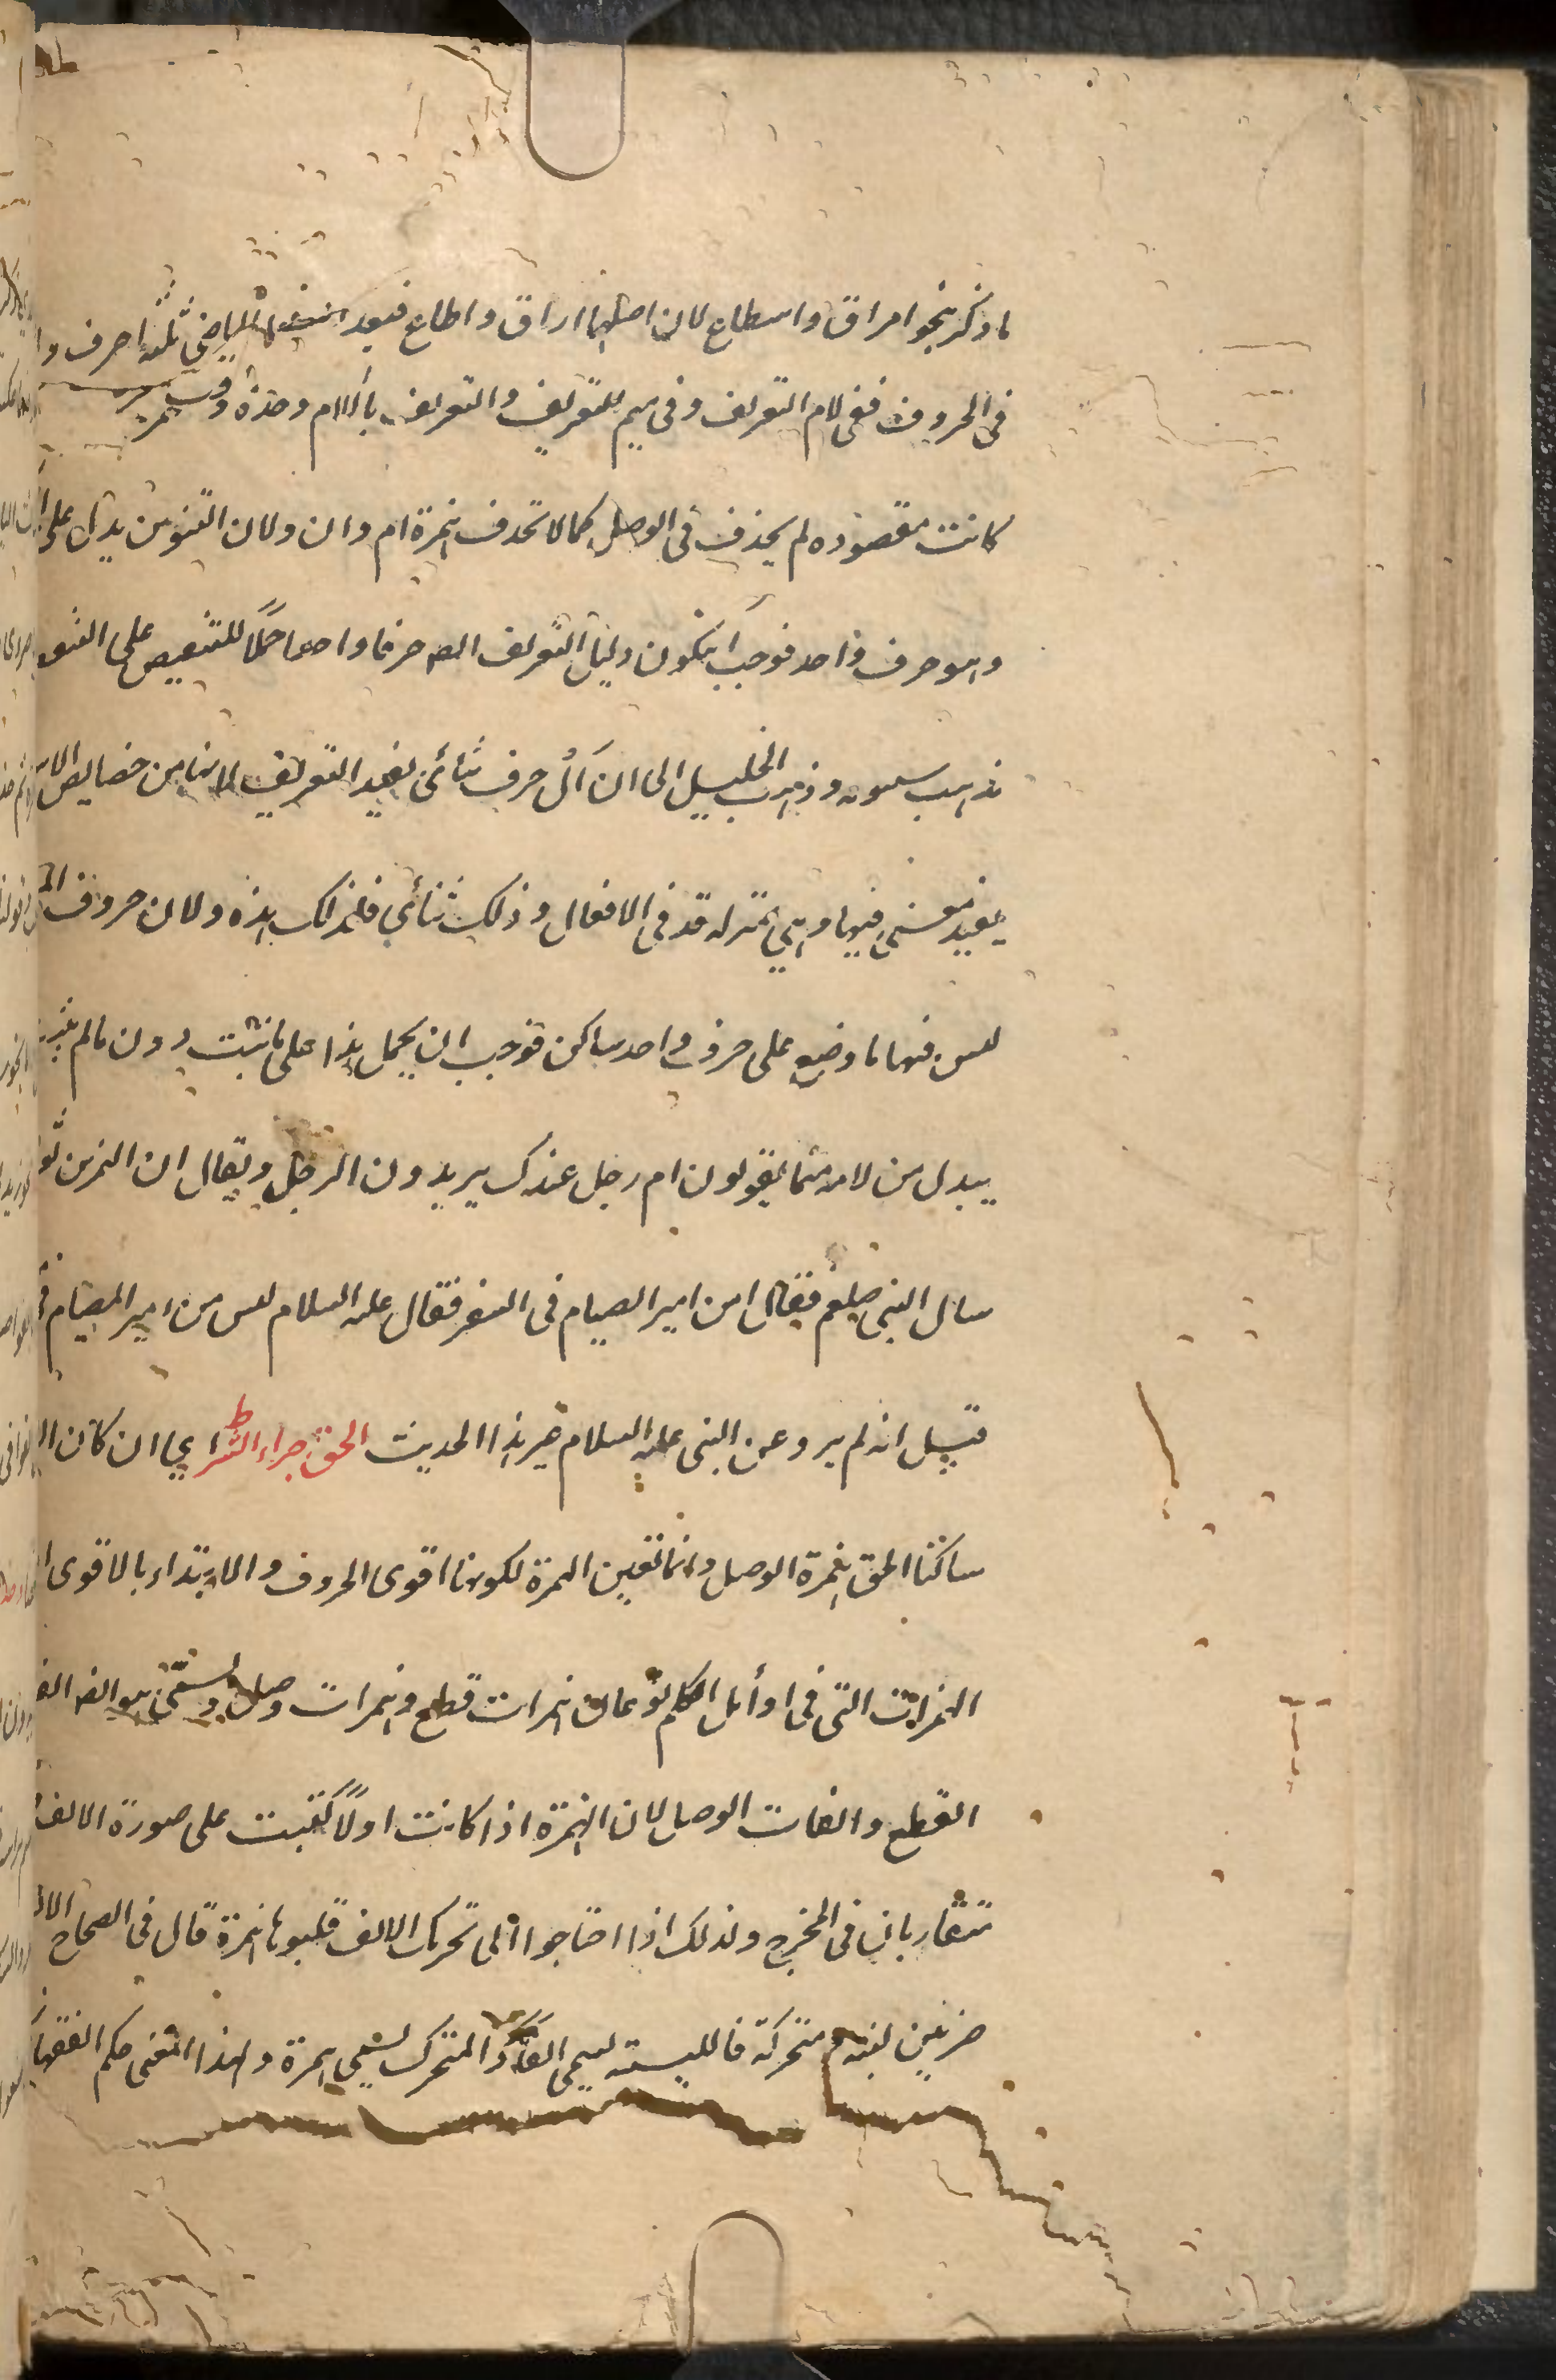 ما ذكر بنحو اهراق واسطاع لان اصلهما اراق واطاع فبعد الماضى ثلثه احرف وا
فى الحروف ففى لام التعريف وفى ميم للتعريف والتعريف باللام وحده
كانت مقصوده لم يحذف فى الوصل كما لا تحذف همزة ام وان ولان التنوين يدل على
وهو حرف واحد فوجب ان يكون دليل التعريف ايضا حرفا واحدا حملا للنقيض على النقيض
مذهب سيبويه وذهب الخليل الى ان أل حرف ثنائى يفيد التعريف لانها من خصايص الاسم
يفيد معنى فيها وهى بمنزلة قد فى الافعال وذلك ثنائي فلذلك هذه ولان حروف
ليس فيها ما وضع على حرف واحد ساكن فوجب ان يحمل هذا على ما ثبت دون ما لم يثبت
يبدل من لامه ميما يقولون ام رجل عندك يريدون الرجل ويقال ان النمر بن تولب
سال النبى صلعم فقال امن امبر امصيام فى السفر فقال عليه السلام ليس من امبر امصيام فى
قيل انه لم يرو عن النبى عليه السلام غير هذا الحديث الحق جزاء الشرط اي ان كان
ساكنا الحق همزة الوصل وانما تعين الهمزة لكونها اقوى الحروف والابتداء بالاقوى
الهمزات التى فى اوائل الكلم نوعان همزات قطع وهمزات وصل وتسمى هو ايضا الف
القطع والفات الوصل لان الهمزة اذا كانت اولا كتبت على صورة الالف
متقاربان فى المخرج ولذلك اذا احتاجوا الى تحريك الالف قلبوها همزة قال فى الصحاح الالف
ضربين لينة ومتحركة فاللينة تسمى الفا والمتحرك تسمى همزة ولهذا المعنى حكم الفقهاء